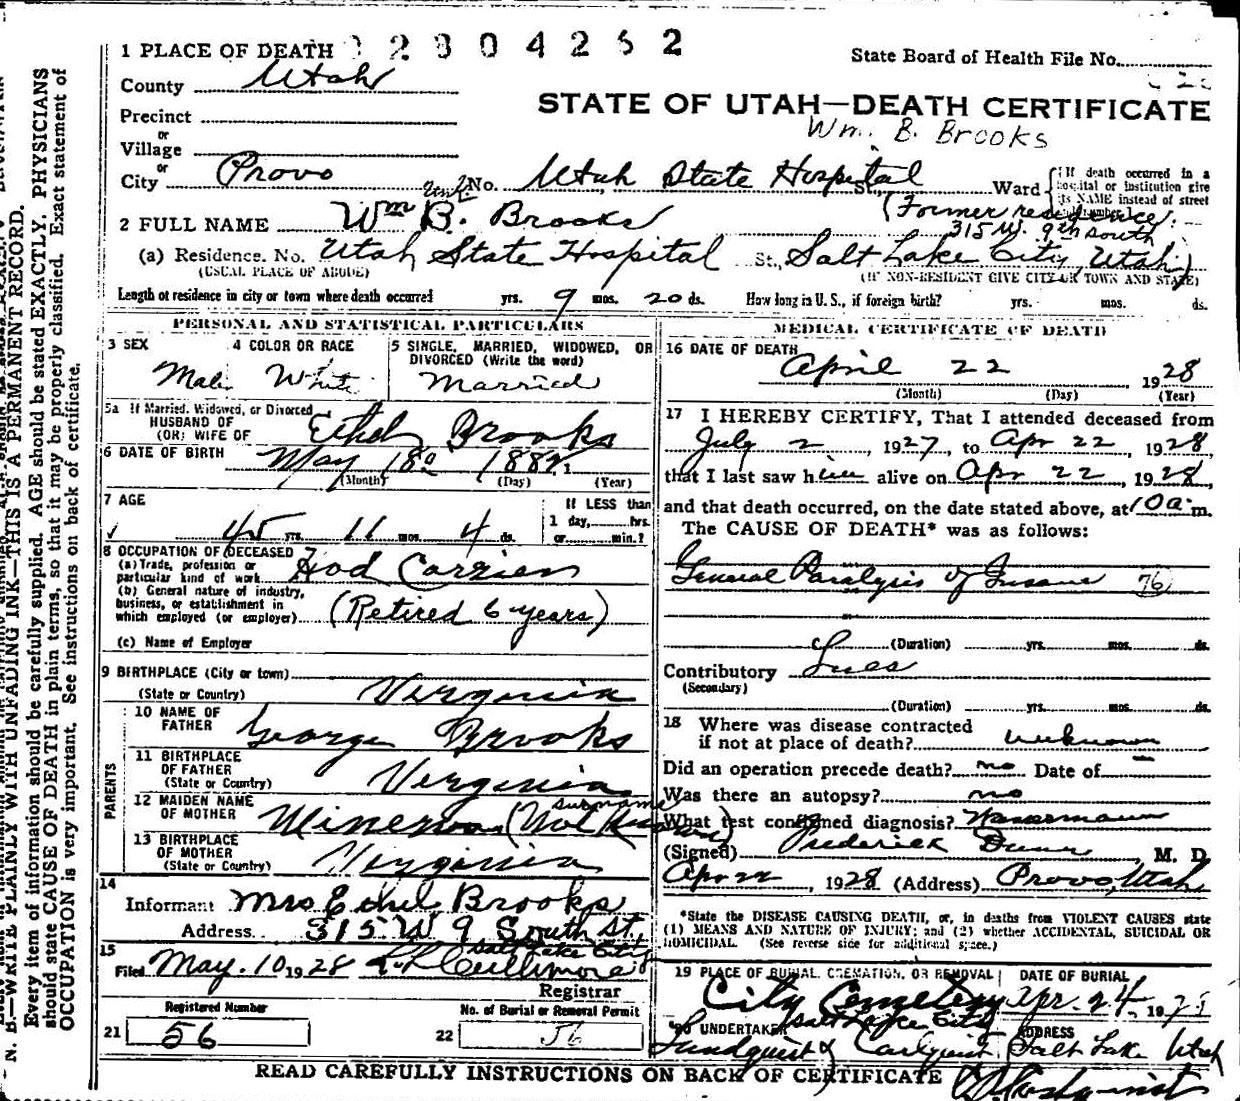 1 PLACE OF DEATH
State Board of Health File No.
County Utah
STATE OF UTAH—DEATH CERTIFICATE
Precinct
Wm. B. Brooks
or
Village
or
City Provo No. Utah State Hospital St., Ward
If death occurred in a hospital or institution give its NAME instead of street
2 FULL NAME Wm B. Brooks
(Former residence. 315 W. 9th South
(a) Residence. No. Utah State Hospital St., Salt Lake City, Utah)
(USUAL PLACE OF ABODE) (IF NON-RESIDENT GIVE CITY OR TOWN AND STATE)
Length of residence in city or town where death occurred yrs. 9 mos. 20 ds. How long in U. S., if foreign birth? yrs. mos. ds.
PERSONAL AND STATISTICAL PARTICULARS
3 SEX 4 COLOR OR RACE 5 SINGLE, MARRIED, WIDOWED, OR DIVORCED (Write the word)
Male White Married
5a If Married, Widowed, or Divorced
HUSBAND OF
(OR) WIFE OF Ethel Brooks
6 DATE OF BIRTH May 18
(Month) (Day) (Year)
7 AGE If LESS than
45 yrs. 11 mos. 4 ds. 1 day, hrs. or min.?
8 OCCUPATION OF DECEASED
(a) Trade, profession or particular kind of work Hod Carrier
(b) General nature of industry, business, or establishment in which employed (or employer) (Retired 6 years)
(c) Name of Employer
9 BIRTHPLACE (City or town)
(State or Country) Virginia
PARENTS
10 NAME OF FATHER George Brooks
11 BIRTHPLACE OF FATHER (State or Country) Virginia
12 MAIDEN NAME OF MOTHER Minerva (surname Not Known)
13 BIRTHPLACE OF MOTHER (State or Country) Virginia
14
Informant Mrs Ethel Brooks
Address 315 W. 9 South St,
Salt Lake City
15
Filed May. 10 1928
Registrar
Registered Number No. of Burial or Removal Permit
21 56 22 56
MEDICAL CERTIFICATE OF DEATH
16 DATE OF DEATH
April 22 1928
(Month) (Day) (Year)
17 I HEREBY CERTIFY, That I attended deceased from
July 2, 1927, to Apr 22, 1928
that I last saw him alive on Apr 22, 1928,
and that death occurred, on the date stated above, at 10 a m.
The CAUSE OF DEATH* was as follows:
General Paralysis of Insane 76
(Duration) yrs. mos. ds.
Contributory Lues
(Secondary)
(Duration) yrs. mos. ds.
18 Where was disease contracted
if not at place of death? unknown
Did an operation precede death? no Date of
Was there an autopsy? no
What test confirmed diagnosis? Wassermann
(Signed) Frederick Dunn, M. D.
Apr 22, 1928 (Address) Provo, Utah
*State the DISEASE CAUSING DEATH, or, in deaths from VIOLENT CAUSES state
(1) MEANS AND NATURE OF INJURY; and (2) whether ACCIDENTAL, SUICIDAL OR
HOMICIDAL. (See reverse side for additional space.)
19 PLACE OF BURIAL, CREMATION, OR REMOVAL DATE OF BURIAL
City Cemetery Apr. 24, 1928
Salt Lake City
20 UNDERTAKER ADDRESS
Lundquist & Carlquist Salt Lake Utah
READ CAREFULLY INSTRUCTIONS ON BACK OF CERTIFICATE
N. B.—WRITE PLAINLY WITH UNFADING INK—THIS IS A PERMANENT RECORD.
Every item of information should be carefully supplied. AGE should be stated EXACTLY. PHYSICIANS
should state CAUSE OF DEATH in plain terms, so that it may be properly classified. Exact statement of
OCCUPATION is very important. See instructions on back of certificate.